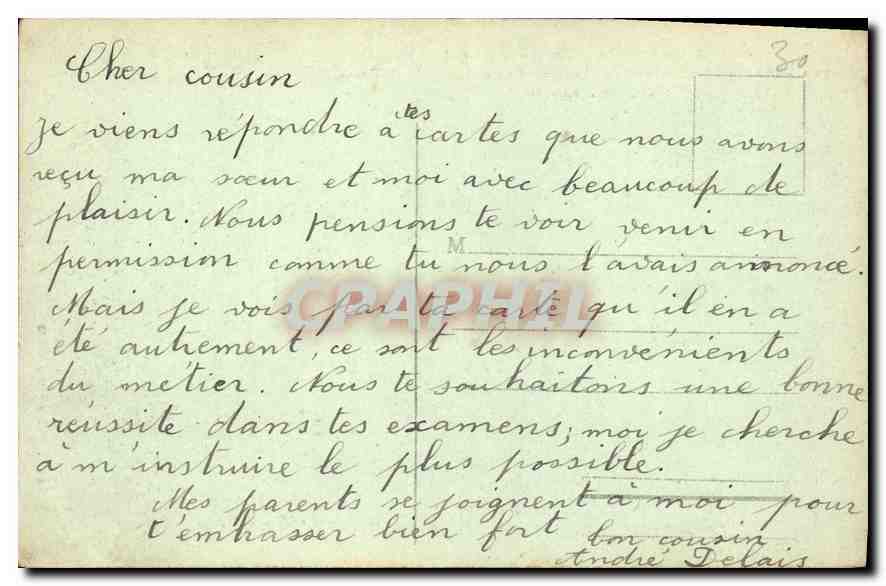 30
Cher cousin
Je viens répondre à tes cartes que nous avons
reçu ma sœur et moi avec beaucoup de
plaisir. Nous pensions te voir venir en
M
permission comme tu nous l'avais annoncé.
Mais je vois par ta carte qu'il en a
CPAPHIL
été autrement, ce sont les inconvénients
du métier. Nous te souhaitons une bonne
réussite dans tes examens; moi je cherche
à m'instruire le plus possible.
Mes parents se joignent à moi pour
t'embrasser bien fort
bon cousin
André Delais